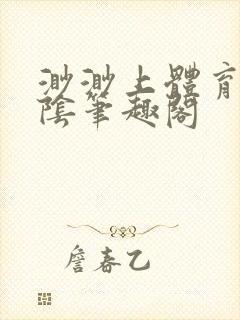 渺渺上體育
陰筆趣閣
詹春乙